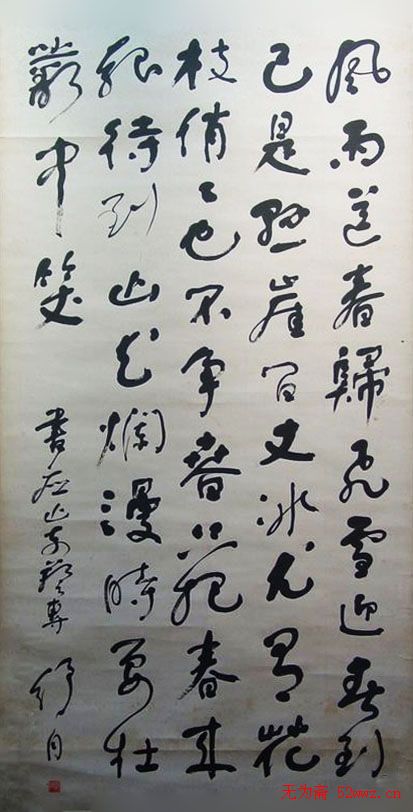 風雨送春歸飛雪迎春到
已是懸崖百丈冰尤有花
枝俏〻也不爭春只把春來
報待到山花爛漫時她在
叢中笑
書 山東
舒同
无为斋 52wwz.cn